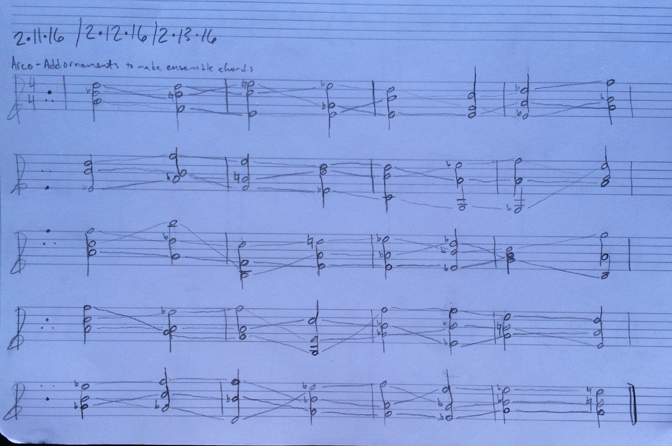 2·11·16 / 2·12·16 / 2·13·16
Arco - Add ornaments to make ensemble chords
4
4